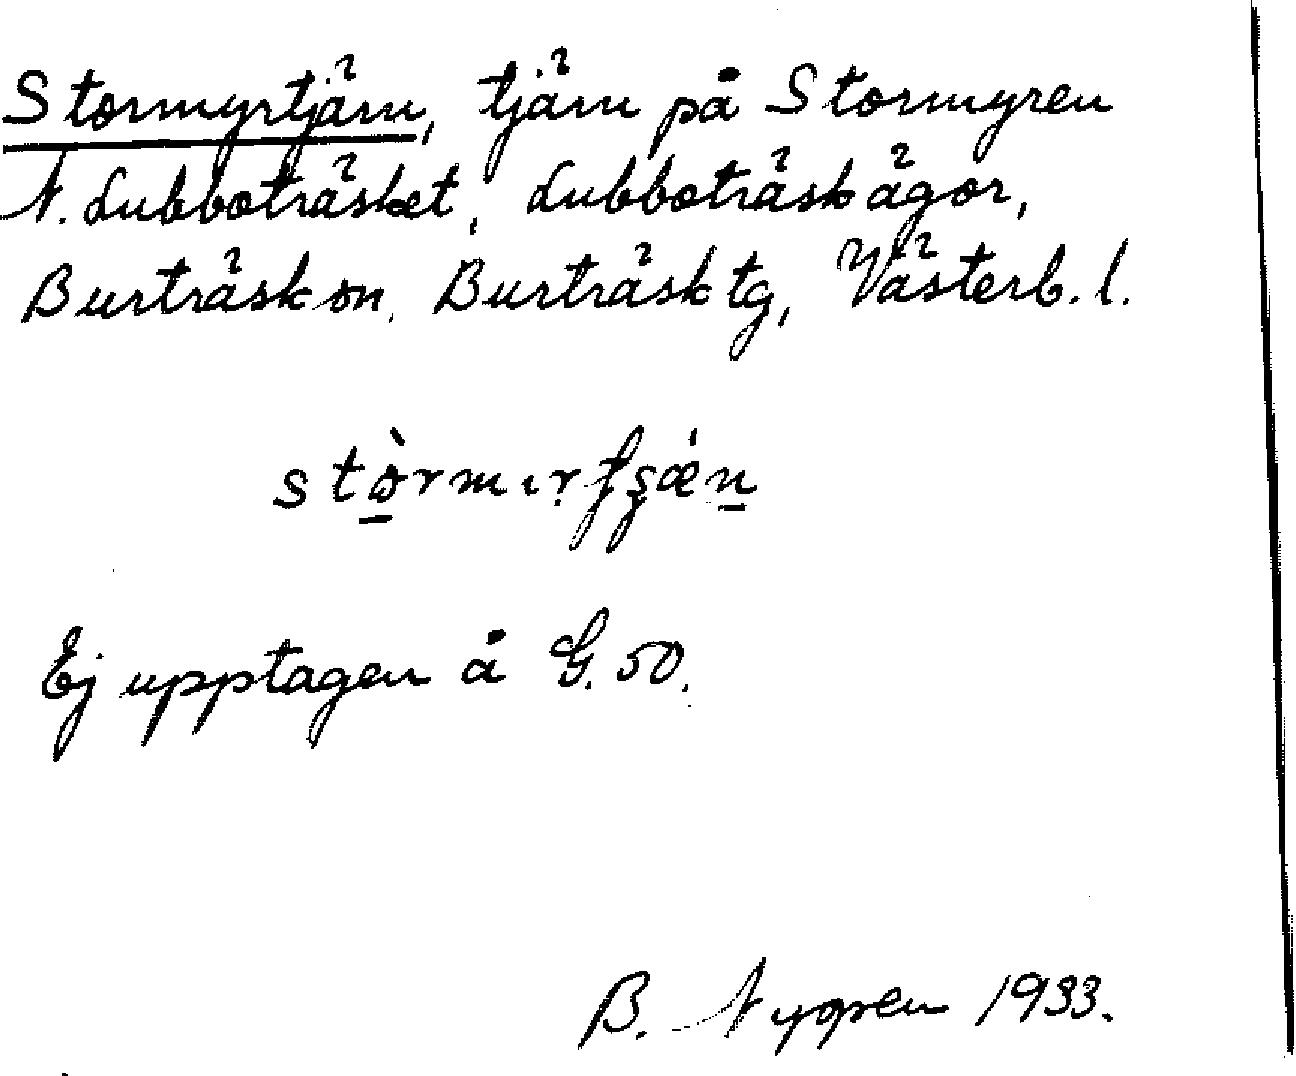 Stormyrtjärn, tjärn på Stormyren
N. Lubboträsket, Lubboträsk ägor,
Burträsk sn, Burträsk tg, Västerb. l.
Ej upptagen å G. 50.
B. Nygren 1933.